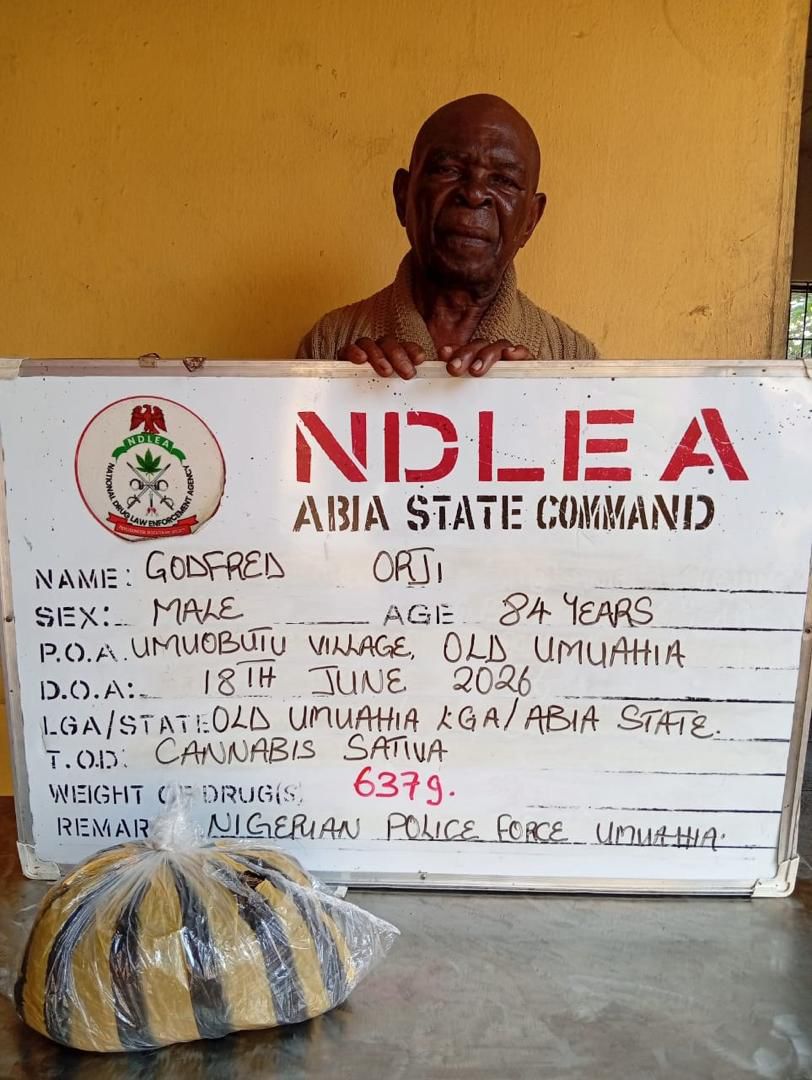 NDLEA
NDLEA
NATIONAL DRUG LAW ENFORCEMENT AGENCY
ABIA STATE COMMAND
NAME: GODFRED ORJI
SEX: MALE AGE 84 YEARS
P.O.A. UMUOBUTU VILLAGE, OLD UMUAHIA
D.O.A: 18TH JUNE 2026
LGA/STATE OLD UMUAHIA LGA/ABIA STATE.
T.O.D: CANNABIS SATIVA
WEIGHT OF DRUG(S) 637g.
REMAR NIGERIAN POLICE FORCE UMUAHIA.